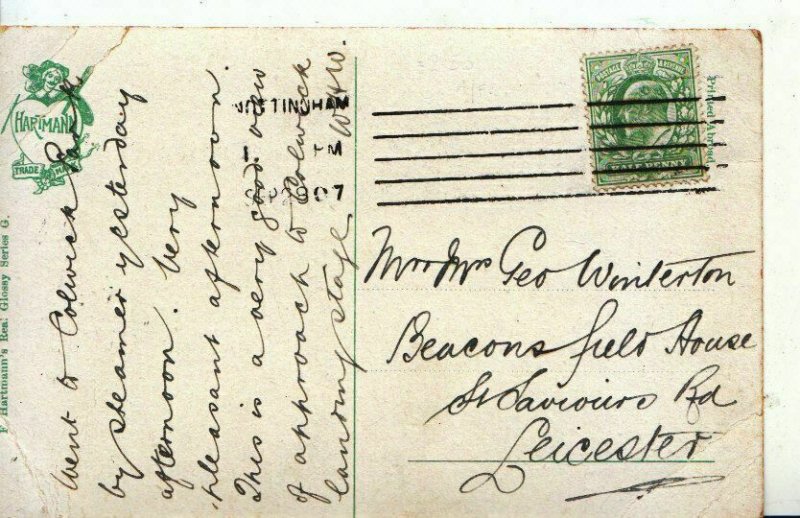 Went to Colwick Park
by steamer yesterday
afternoon. Very
pleasant afternoon.
This is a very good view
of approach to Colwick
landing stage W.H.W.
NOTTINGHAM
PM
SP 29 07
POSTAGE & REVENUE
HALFPENNY
Printed Abroad
Mr & Mrs Geo Winterton
Beaconsfield House
St Saviours Rd
Leicester
HARTMANN
TRADE MARK
F. Hartmann's Real Glossy Series G.